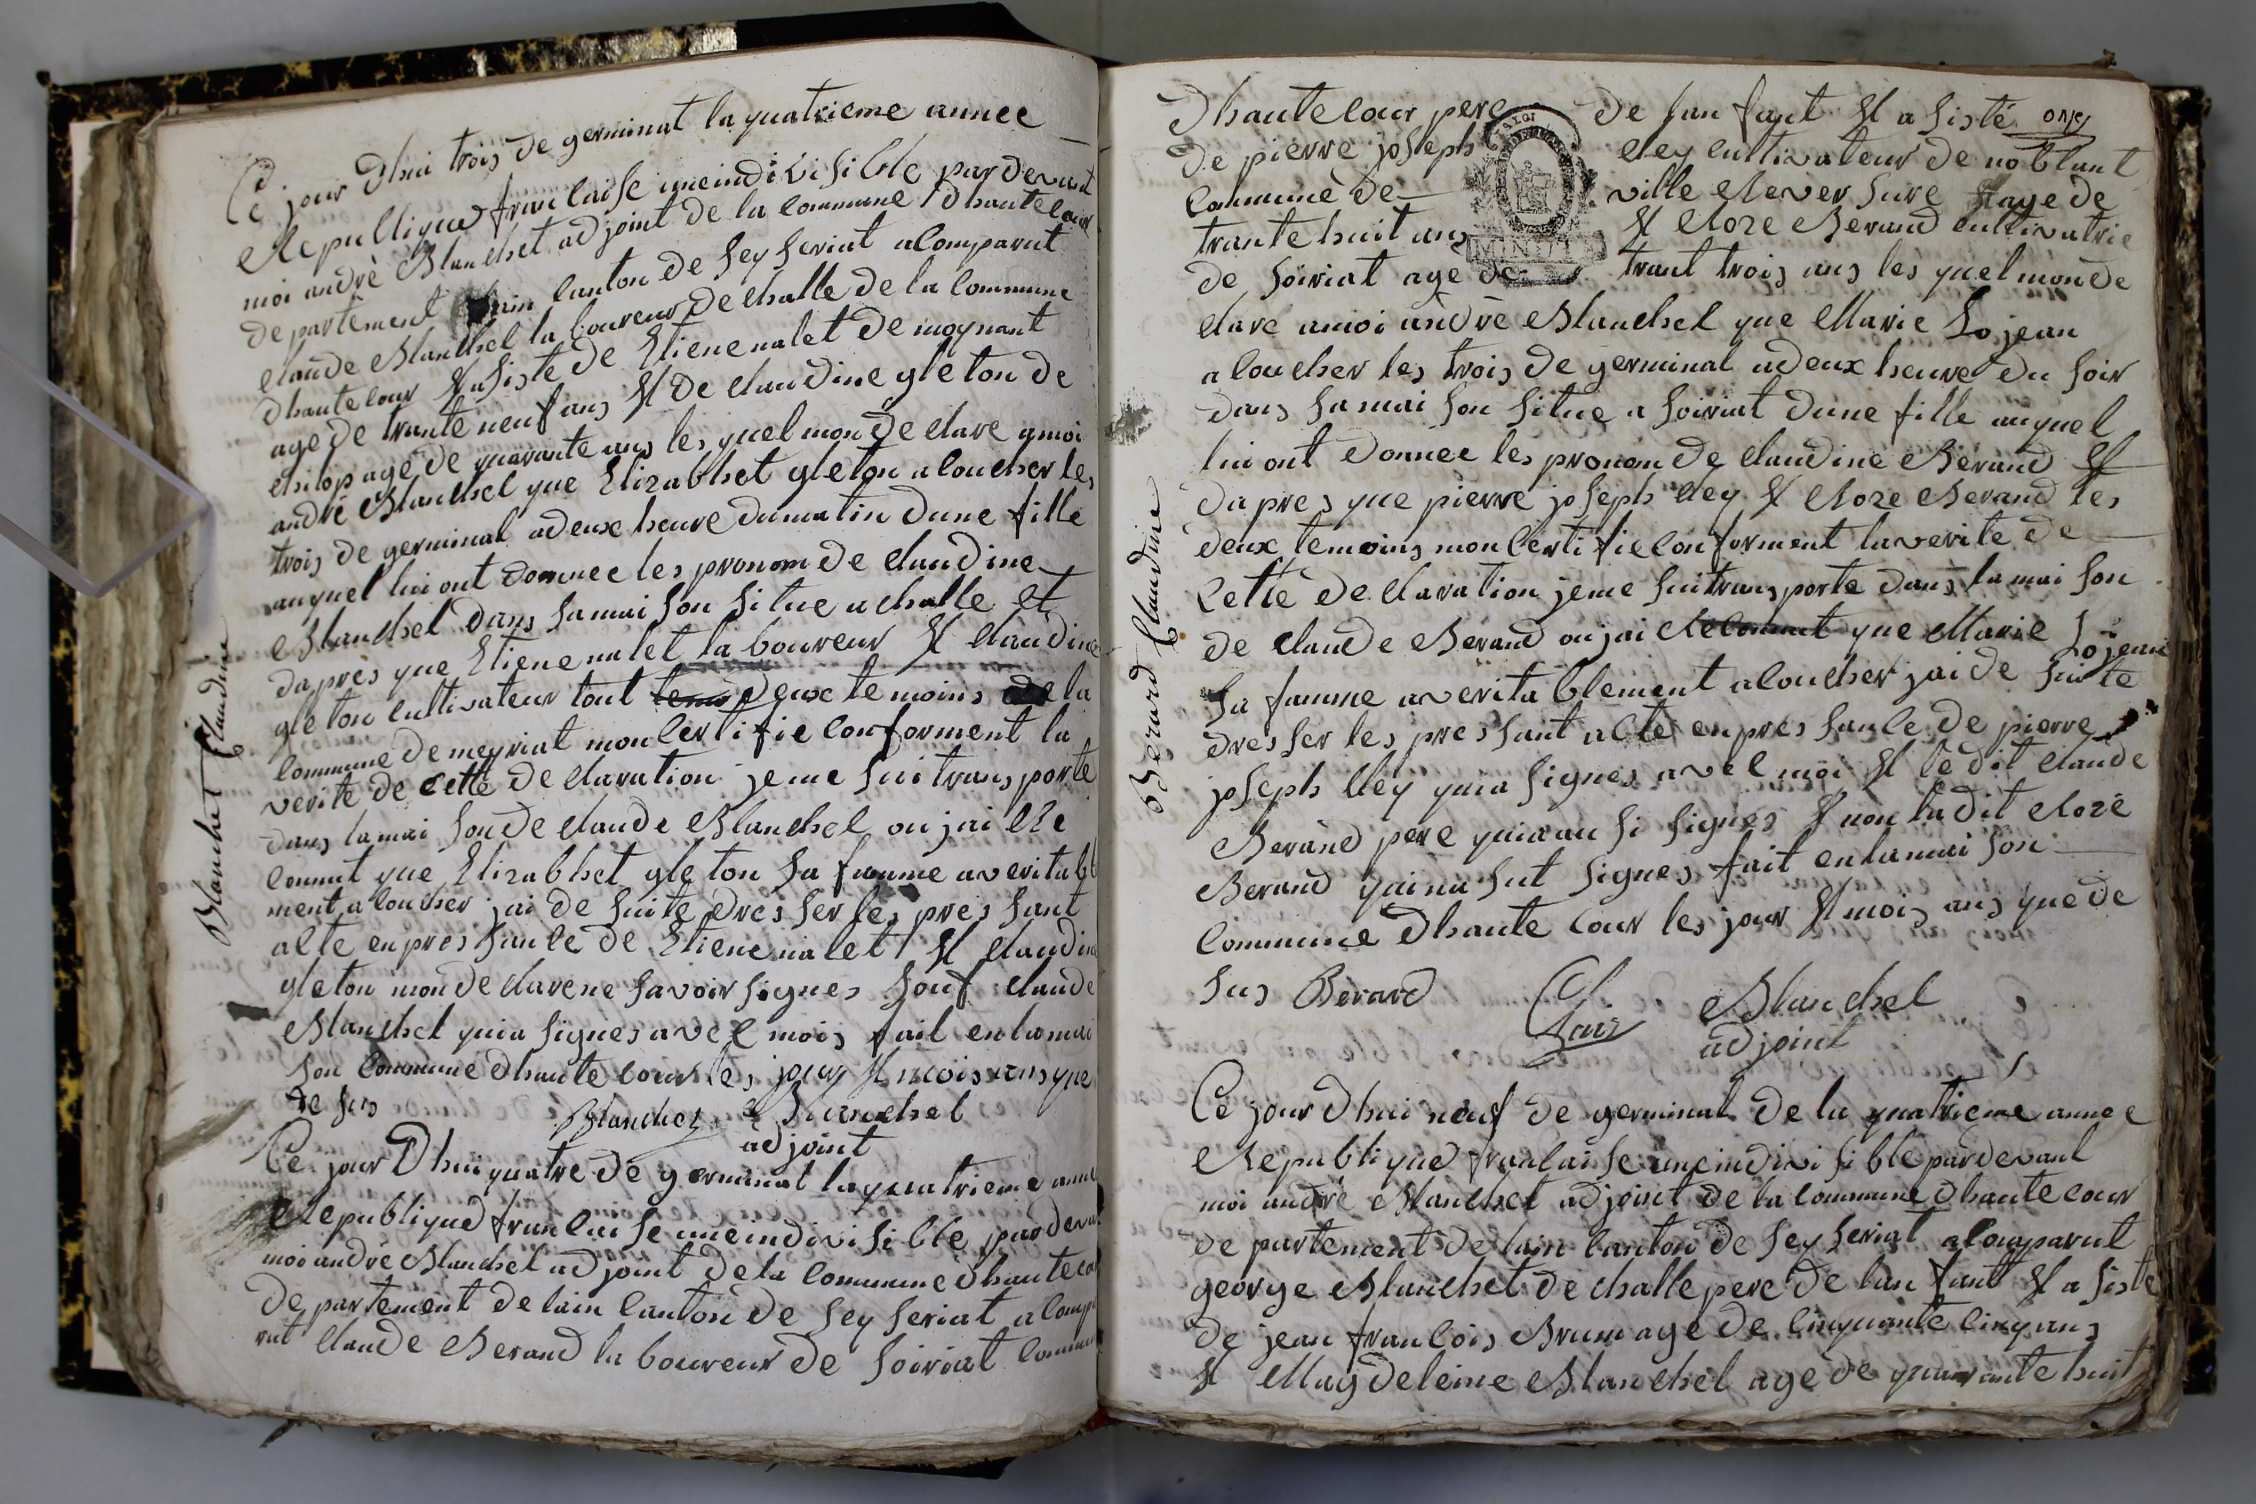 Ce jour Dhui trois de germinat la quatrieme annee
Republique francaise uneindivisible par devant
moi andrè Blanchet adjoint de la commune dhautecour
departement lain canton de Seyseriat a comparut
claude Blanchet laboureur de challe de la commune
dhautecour Et asiste de Etiene nalet de moynant
age de trante neuf ans Et de claudine gleton de
chilop age de quarante ans les quel mon de clare amoi
andré Blanchet que Elizabhet gleton acoucher les
trois de germinal adeux heure dumatin Dune fille
auquel lui ont donnee les pronom de claudine
Blanchet dans samaison situe achalle et
daprès que Etiene nalet laboureur Et claudine
gleton cultivateur tout deux temoins de la
commune de meyriat mon certifie conforment la
verite de cette declaration jeme sui transporte
dans lamaison de claude Blanchet ou jai Re
connut que Elizabhet gleton sa famme averitable
ment acoucher jai de suite dresser les pressant
acte en pressance de Etiene nalet Et claudine
gleton mon declarene savoir signes Souf claude
Blanchet quia signes avec mois fait en lamai
son commune dhautecour les jour Et mois ans que
de sus Blanchet Blanchet
adjoint
Ce jour Dhui quatre de germinat la quatrieme anne
Republique francaise uneindivisible pardevant
moi andré Blanchet adjoint de la commune dhautecou
departement de lain canton de Seyseriat a compa
rut claude Berand laboureur de Soiriat commu
Blanchet Claudine
Dhautecour pere de lanfant Et asisté onze
de pierre joseph Rey cultivateur de noblant
commune de ville Reversure age de
trante huit ans Et Roze Berand cultivatrie
de Soiriat age de trant trois ans les quel monde
clare amoi andrè Blanchet que Marie Lojean
acoucher les trois de germinal adeux heure du soir
dans samaison situe a soiriat dune fille auquel
lui ont donnee les pronom de claudine Berand Et
dapres que pierre joseph Rey Et Roze Berand les
deux temoins mon certifie conforment laverite de
cette declaration jeme sui transporte dans lamaison
de claude Berand ou jai Reconnut que Marie Lojean
sa famme averitablement acoucher jai de suite
dresser les pressant acte en pressance de pierre
joseph Rey quia signes avec moi Et le dit claude
Berand pere quia ausi signes Et non ladit Roze
Berand quina sut signes fait en lamaison
commune Dhautecour les jour Et mois ans que de
sus Berard Blanchet
adjoint
Ce jour Dhui neuf de germinal de la quatrieme annee
Republique francaise uneindivisible pardevant
moi andré Blanchet adjoint de la commune dhautecour
departement de lain canton de Seyseriat acomparut
george Blanchet de challe pere de lanfant Et asiste
de jean francois Brun age de cinquante cinq ans
Et Magdeleine Blanchet age de quarante huit
Berard Claudine